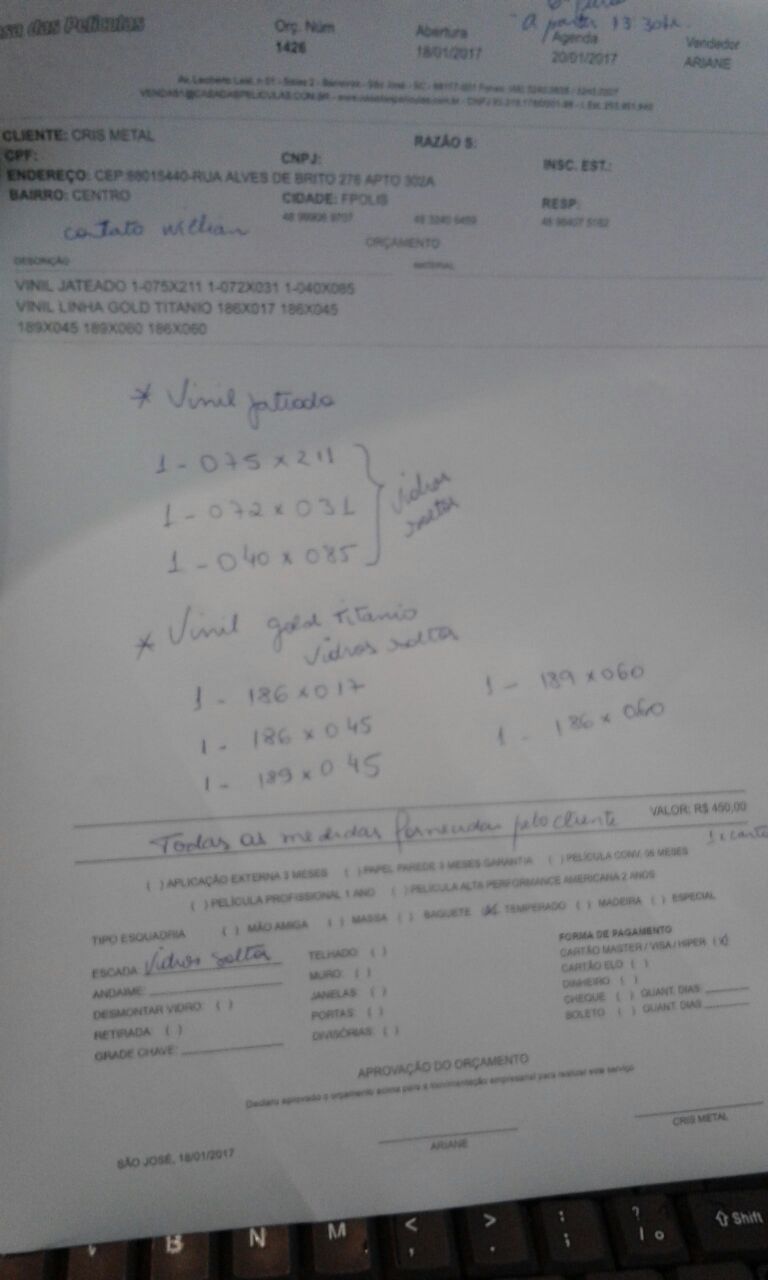 das Peliculas
Orç. Núm Abertura Agenda Vendedor
1426 18/01/2017 20/01/2017 ARIANE
A partir 13:30hr.
CLIENTE: CRIS METAL RAZÃO S:
CPF: CNPJ: INSC. EST.:
ENDEREÇO: CEP 88015440-RUA ALVES DE BRITO 276 APTO 302A
BAIRRO: CENTRO CIDADE: FPOLIS RESP:
contato Willian
ORÇAMENTO
DESCRIÇÃO MATERIAL
VINIL JATEADO 1-075X211 1-072X031 1-040X085
VINIL LINHA GOLD TITANIO 186X017 186X045
189X045 189X060 186X060
* Vinil jatiado
1 - 075 x 211
1 - 072 x 031
1 - 040 x 085
vidros
soltos
* Vinil gold titanio
vidros soltos
1 - 186 x 017 1 - 189 x 060
1 - 186 x 045 1 - 186 x 060
1 - 189 x 045
VALOR: R$ 450,00
Todas as medidas fornecidas pelo cliente
1 x carto
( ) APLICAÇÃO EXTERNA 3 MESES ( ) PAPEL PAREDE 3 MESES GARANTIA ( ) PELÍCULA CONV. 06 MESES
( ) PELÍCULA PROFISSIONAL 1 ANO ( ) PELÍCULA ALTA PERFORMANCE AMERICANA 2 ANOS
TIPO ESQUADRIA ( ) MÃO AMIGA ( ) MASSA ( ) BAGUETE (x) TEMPERADO ( ) MADEIRA ( ) ESPECIAL
ESCADA: Vidros soltos TELHADO: ( ) FORMA DE PAGAMENTO
ANDAIME: MURO: ( ) CARTÃO MASTER / VISA / HIPER (x)
DESMONTAR VIDRO: ( ) JANELAS: ( ) CARTÃO ELO ( )
RETIRADA: ( ) PORTAS: ( ) DINHEIRO ( )
GRADE CHAVE: DIVISÓRIAS: ( ) CHEQUE ( ) QUANT. DIAS:
BOLETO ( ) QUANT. DIAS:
APROVAÇÃO DO ORÇAMENTO
Declaro aprovado o orçamento acima para a movimentação empresarial para realizar este serviço
SÃO JOSÉ, 18/01/2017 ARIANE CRIS METAL
B N M < , > . : ; ? / ° Shift